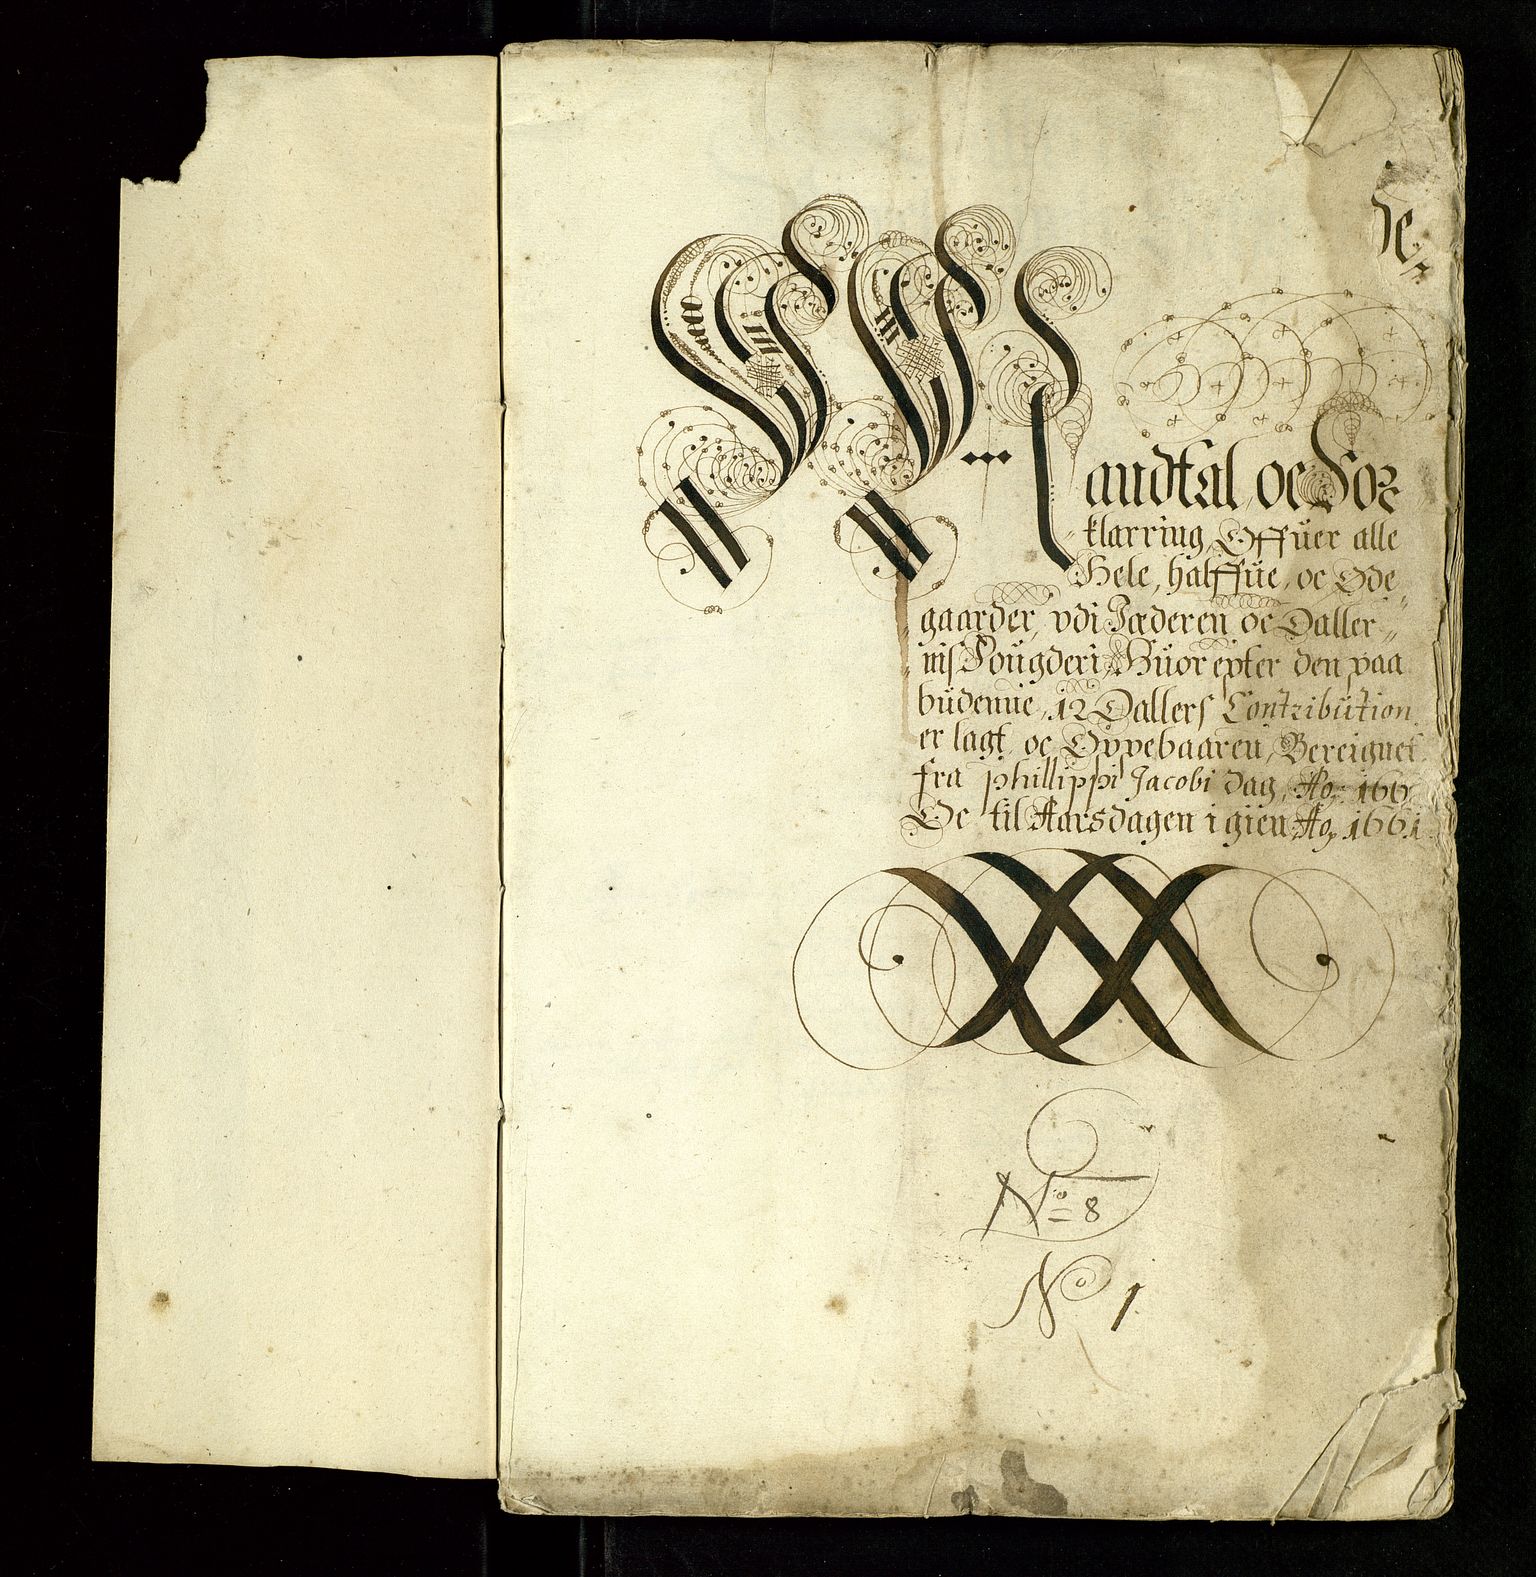 Mandtal oc For
klarring Offuer alle
Hele, halffue, oc Øde
gaarder, vdi Jæderen oc Daller
nis Fougderi, Huor epter den paa
budenne, 12 Dallers Contribution
er lagt oc Oppebaaren, Bereignet
fra Phillippi Jacobi dag, Ao:
Oc til Aarsdagen i gien Ao 1661
No 8
No 1